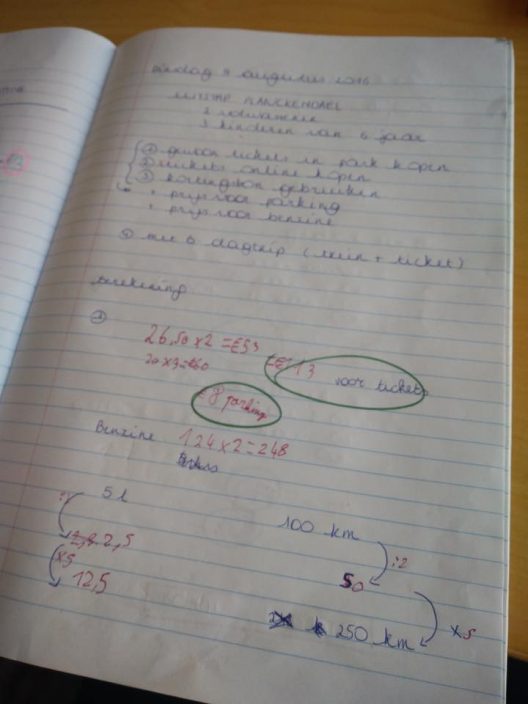 dinsdag 9 augustus 2016
UITSTAP PLANCKENDAEL
2 volwassenen
3 kinderen van 6 jaar
① gewoon tickets in park kopen
② tickets online kopen
③ kortingsbon gebruiken
+ prijs voor parking
+ prijs voor benzine
④ met B dagtrip (trein + ticket)
berekening
①
26,50 x 2 = €53
20 x 3 = €60
= €113 voor tickets
€8 parking
Benzine 124 x 2 = 248
5 l
2,5
x5
12,5
100 km
:2
50
x5
250 km